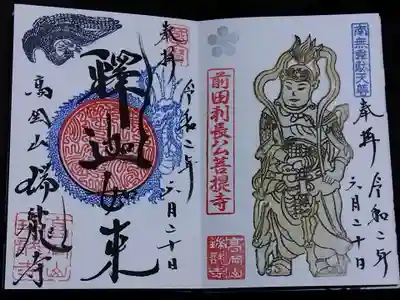 南無韋駄天尊
奉拝
令和二年
六月二十日
前田利長公菩提寺
高岡山
瑞龍寺
奉拝
令和二年
六月二十日
釋迦如来
高岡山
瑞龍寺
高岡山
瑞龍寺